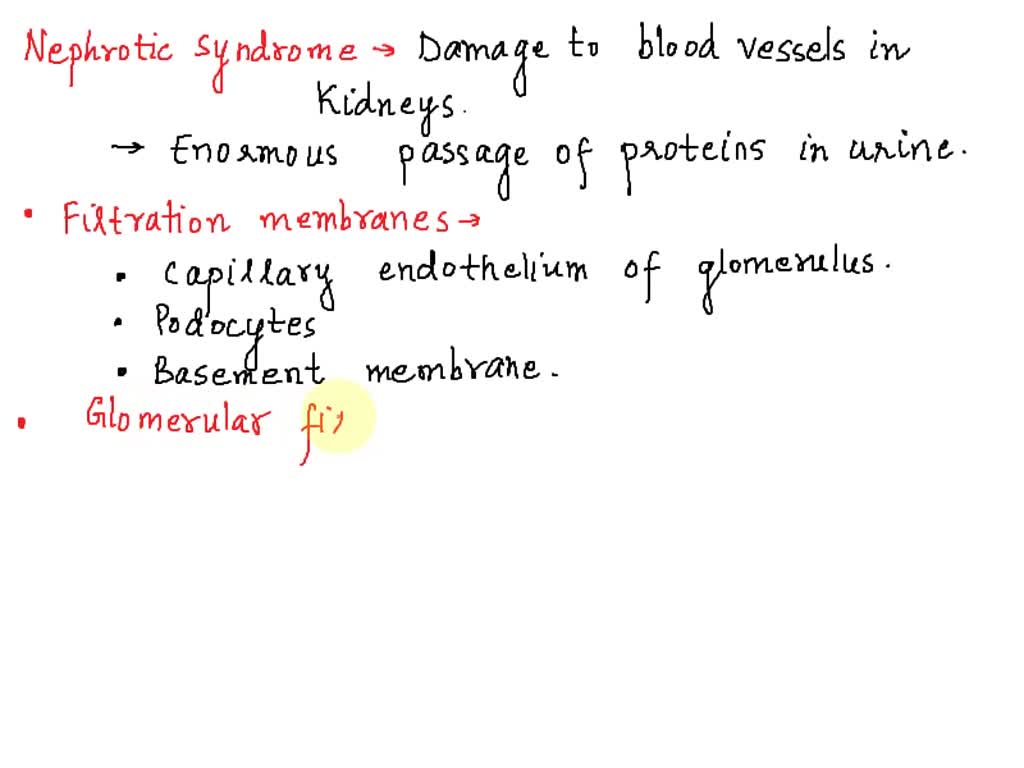 Nephrotic syndrome → Damage to blood vessels in
Kidneys.
→ Enormous passage of proteins in urine.
• Filtration membranes →
• Capillary endothelium of glomerulus.
• Podocytes
• Basement membrane.
• Glomerular fil